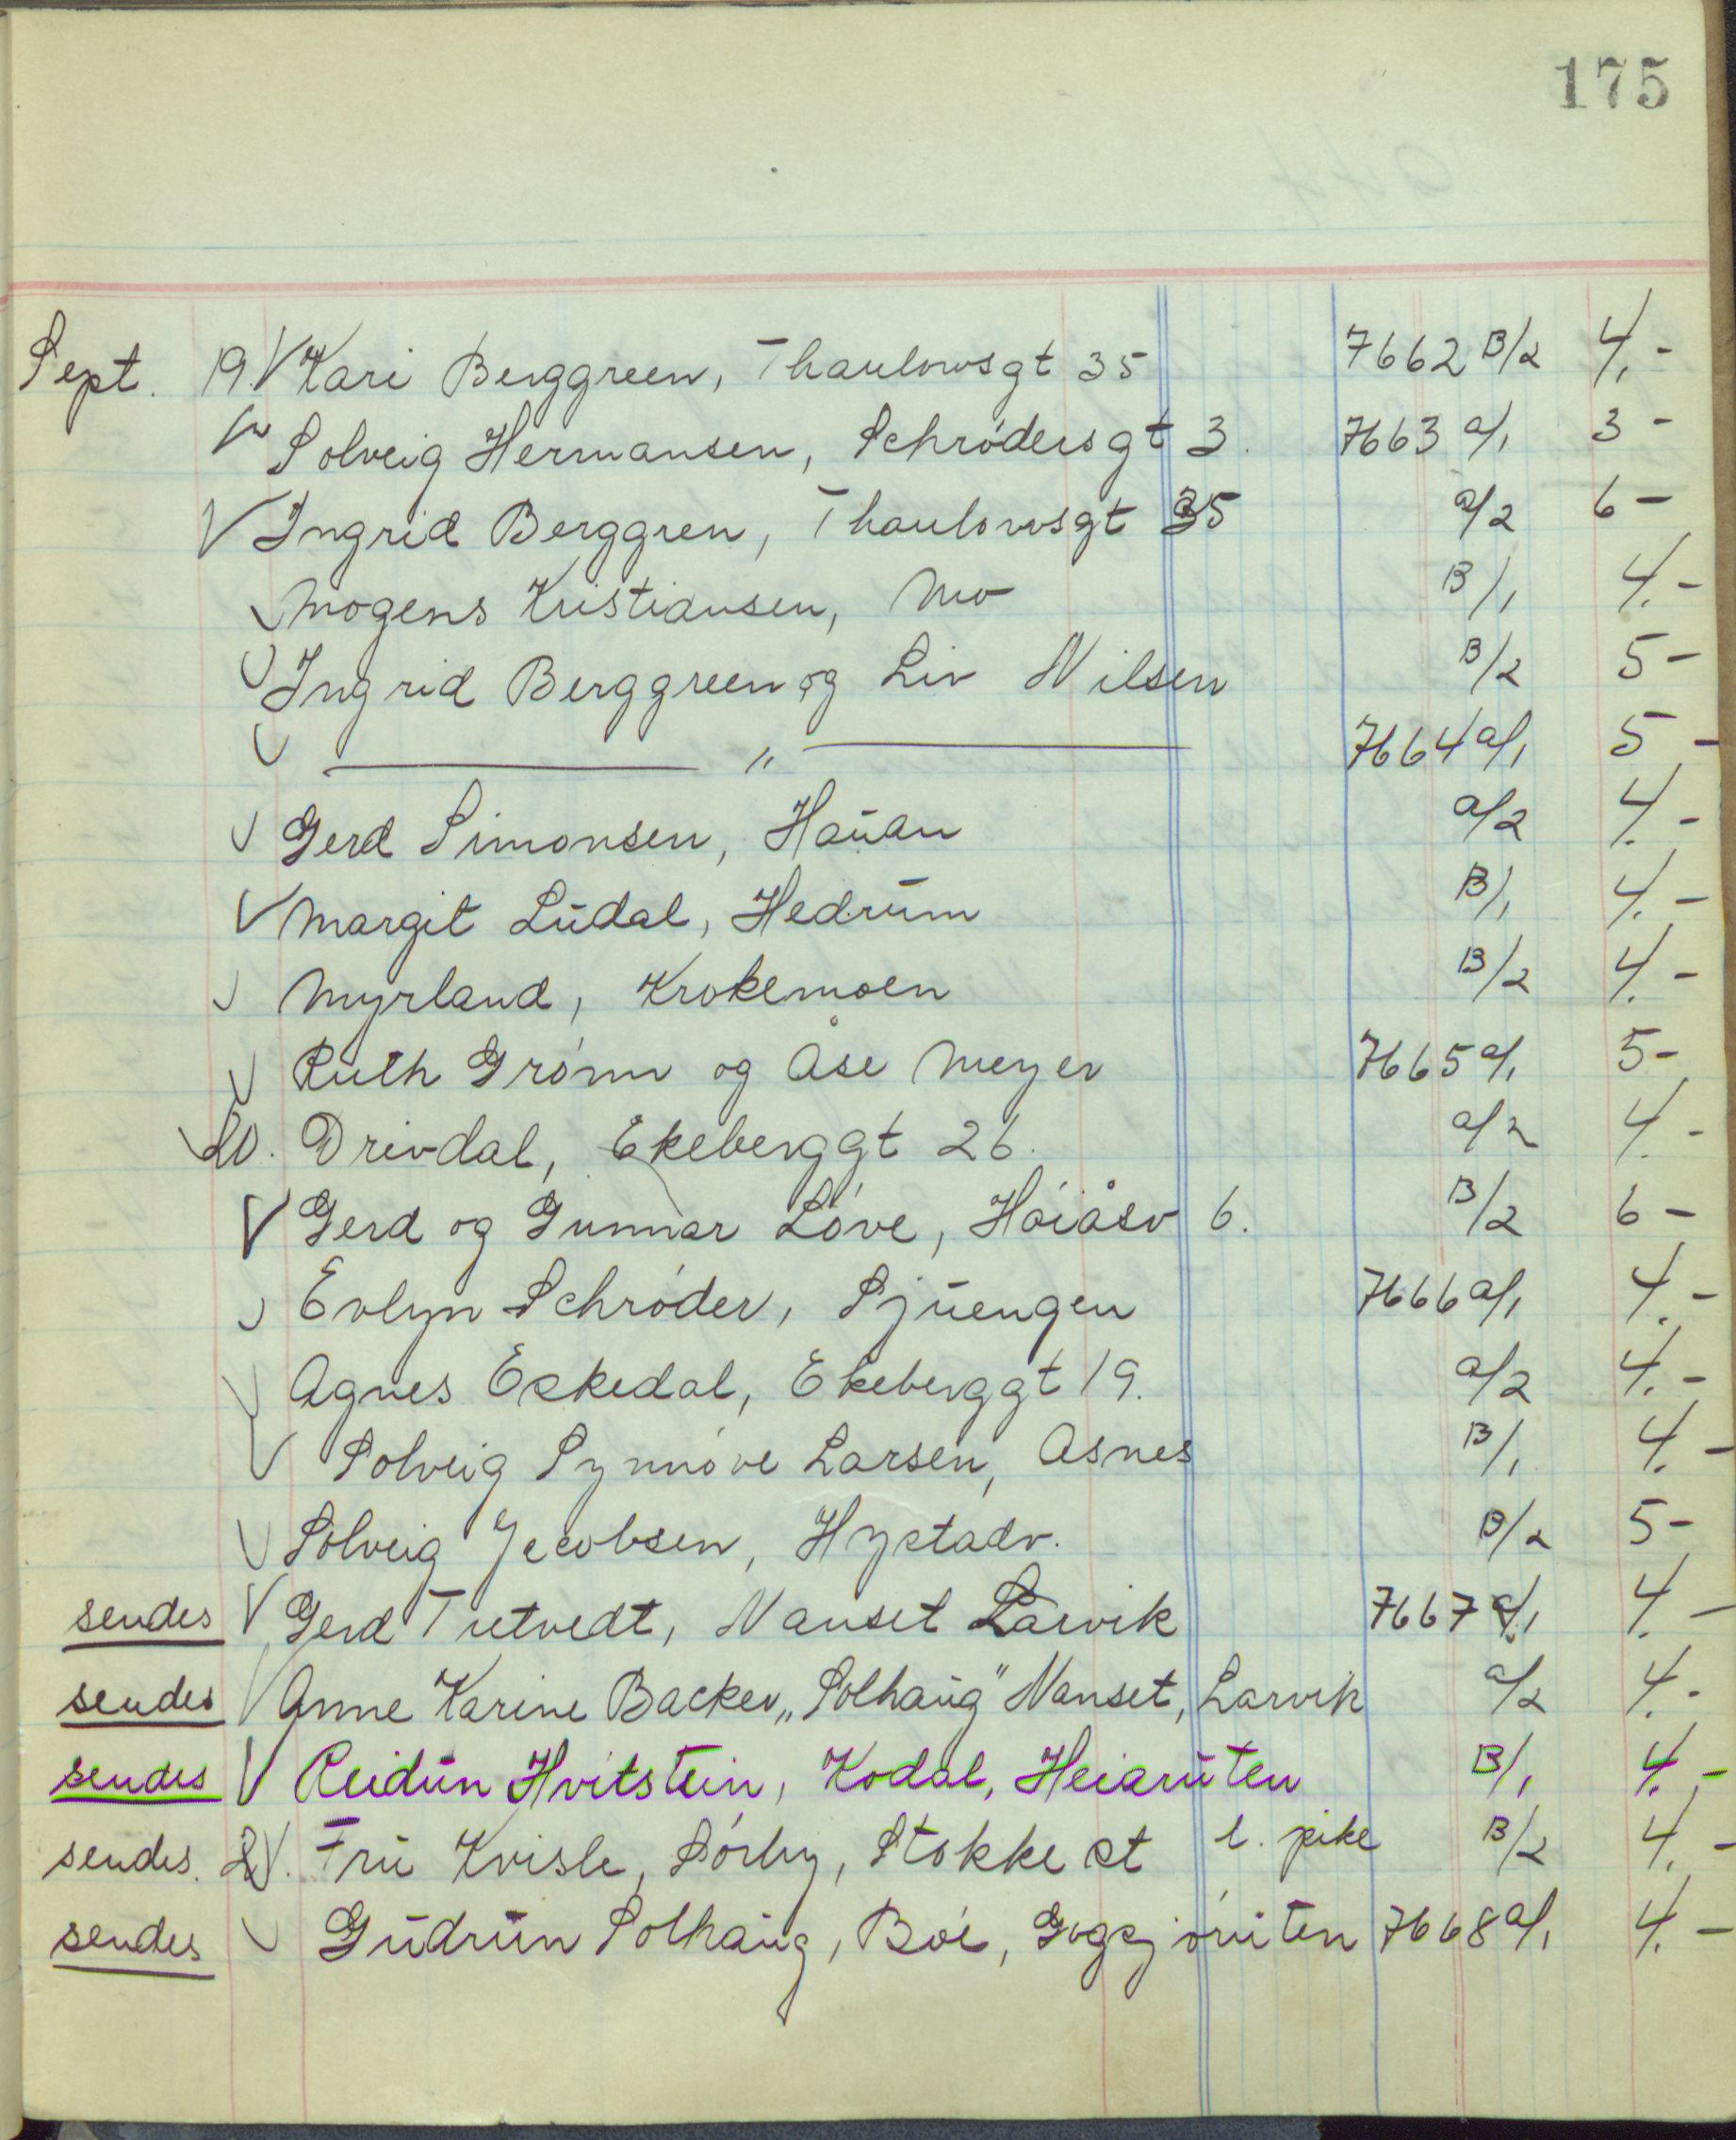 175
Sept. 19. V Kari Berggreen, Thaulowsgt 35 7662 B/2 4,-
V Solveig Hermansen, Schrødersgt 3. 7663 a/1 3-
V Ingrid Berggren, Thaulowsgt 35 a/2 6-
V Mogens Kristiansen, Mo B/1 4.-
V Ingrid Berggreen og Liv Nilsen B/2 5-
V —— " —— 7664 a/1 5-
V Gerd Simonsen, Hauan a/2 4.-
V Margit Ludal, Hedrum B/1 4.-
V Myrland, Krokemoen B/2 4.-
V Ruth Grønn og Åse Meyer 7665 a/1 5-
20. Drivdal, Ekeberggt 26. a/2 4.-
V Gerd og Gunnar Løve, Høiåsv 6. B/2 6-
V Evlyn Schrøder, Sjuengen 7666 a/1 4.-
V Agnes Eskedal, Ekeberggt 19. a/2 4.-
V Solveig Synnøve Larsen, Asnes B/1 4.-
V Solveig Jecobsen, Hystadv. B/2 5-
sendes V Gerd Tutvedt, Nanset Larvik 7667 a/1 4.-
sendes V Anne Karine Backer, „Solhaug" Nanset, Larvik a/2 4.-
sendes V Reidun Hvitstein, Kodal, Heiaruten B/1 4.-
sendes. Fru Kvisle, Sørby, Stokke st l. pike B/2 4.-
sendes V Gudrun Solhaug, Bøe, 7668 a/1 4.-